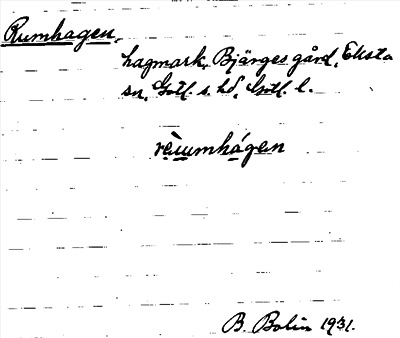 Rumhagen,
hagmark, Bjärges gård, Eksta
sn, Gotl. s. hd, Gotl. l.
rèuumhágen
B. Bolin 1931.